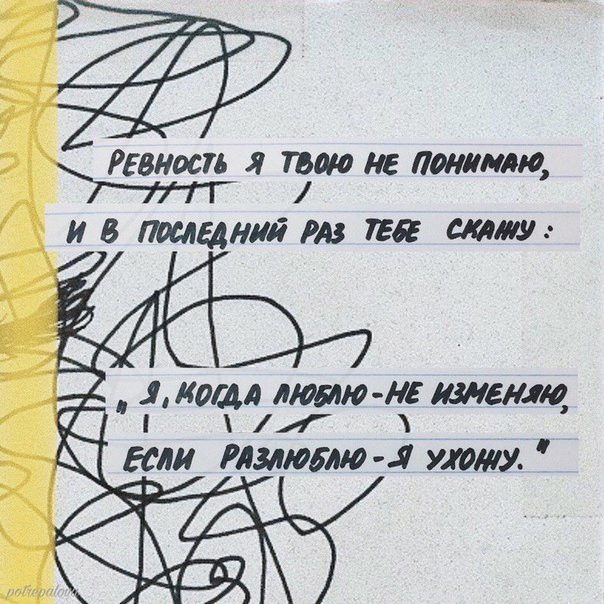 РЕВНОСТЬ Я ТВОЮ НЕ ПОНИМАЮ,
И В ПОСЛЕДНИЙ РАЗ ТЕБЕ СКАЖУ:
„Я, КОГДА ЛЮБЛЮ - НЕ ИЗМЕНЯЮ,
ЕСЛИ РАЗЛЮБЛЮ - Я УХОЖУ."